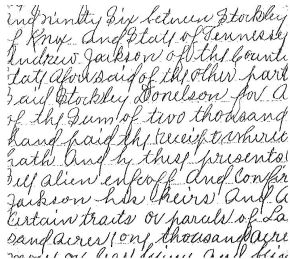 and ninety Six between Stockley
of Knox and State of Tennessee
Andrew Jackson of the Count
State aforesaid of the other part
Said Stockley Donelson for a
of the Sum of two thousand
hand paid the receipt where
hath and by these presents
Sell alien enfeoff and Confir
Jackson his heirs and a
Certain traits or parcels of La
sand acres one thousand acre